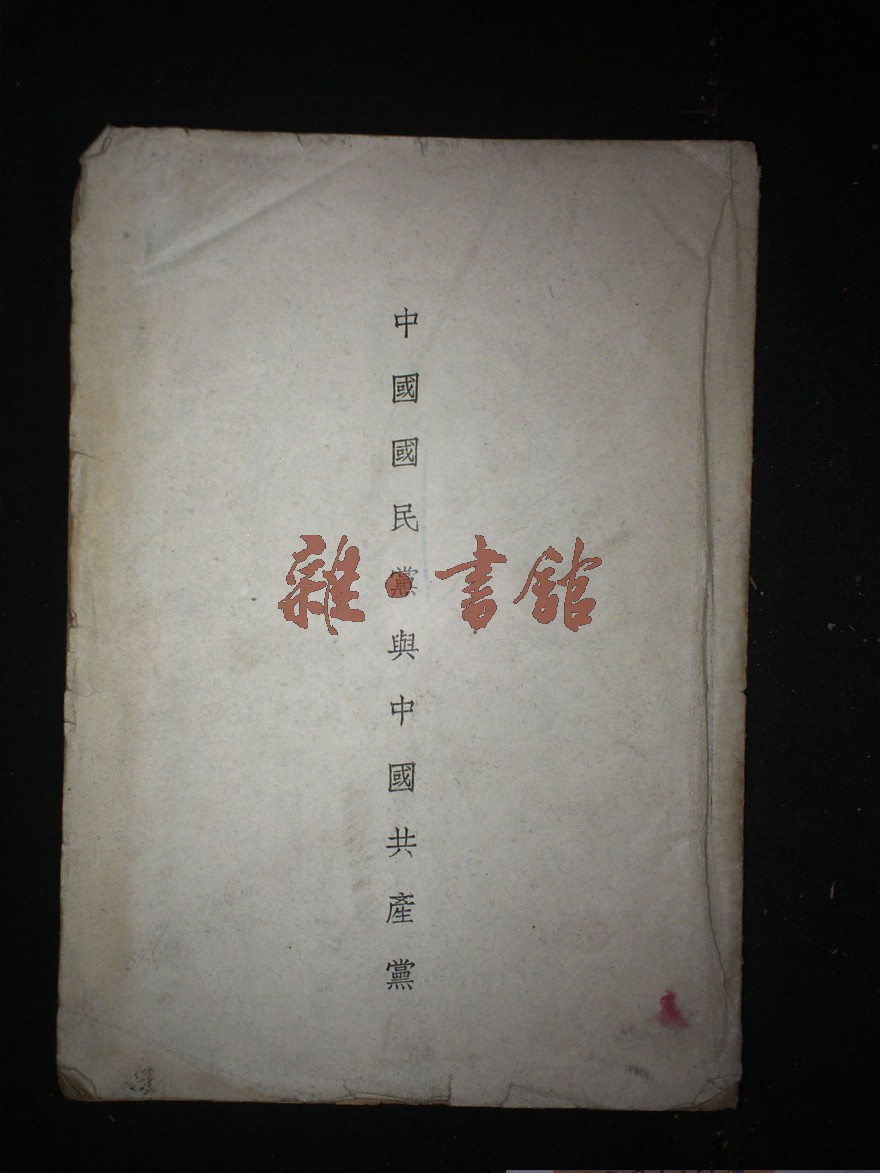 中國國民黨與中國共產黨
雜·書館